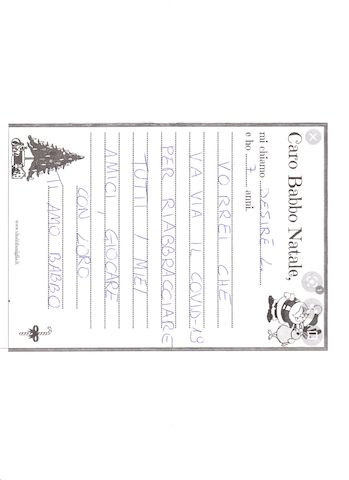 Caro Babbo Natale,
mi chiamo DESIRÉ La
e ho 7 anni.
VORREI CHE
VA VIA IL COVID-19
PER RIABBRACCIARE
TUTTI I MIEI
AMICI, GIOCARE
CON LORO
TI AMO BABBO